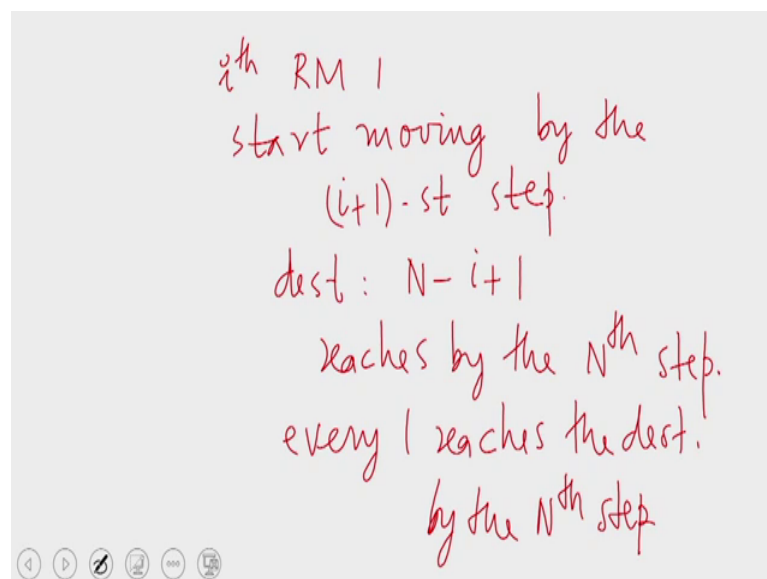 ith RM 1
start moving by the
(i+1)-st step.
dest: N-i+1
reaches by the Nth step.
every 1 reaches the dest.
by the Nth step